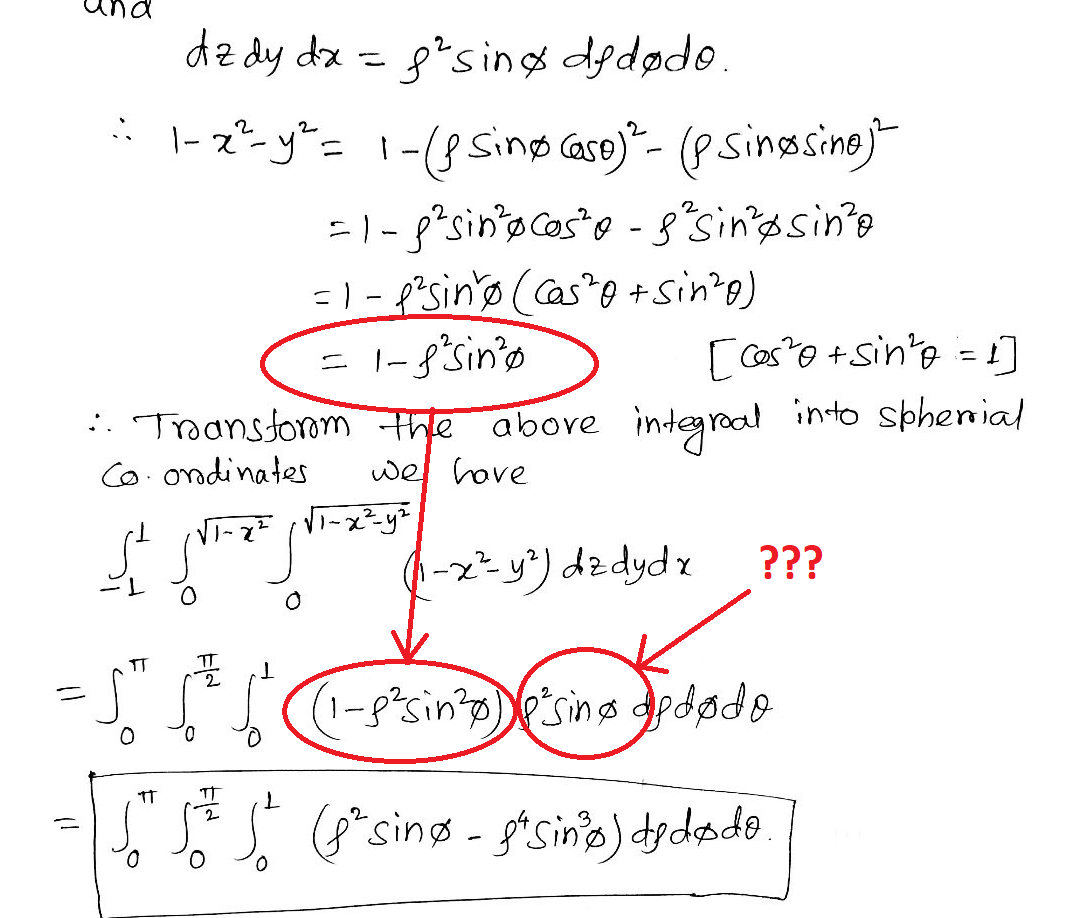 and
dz dy dx = ρ²sinø dρdødθ.
∴ 1-x²-y² = 1-(ρ sinø cosθ)² - (ρ sinø sinθ)²
= 1 - ρ²sin²ø cos²θ - ρ²sin²ø sin²θ
= 1 - ρ²sin²ø (cos²θ + sin²θ)
= 1 - ρ²sin²ø [cos²θ + sin²θ = 1]
∴ Transform the above integral into spherial
Co.ordinates we have
∫₋₁¹ ∫₀^√(1-x²) ∫₀^√(1-x²-y²) (1-x²-y²) dzdydx
???
= ∫₀^π ∫₀^(π/2) ∫₀¹ (1-ρ²sin²ø) ρ²sinø dρdødθ
= ∫₀^π ∫₀^(π/2) ∫₀¹ (ρ²sinø - ρ⁴sin³ø) dρdødθ.